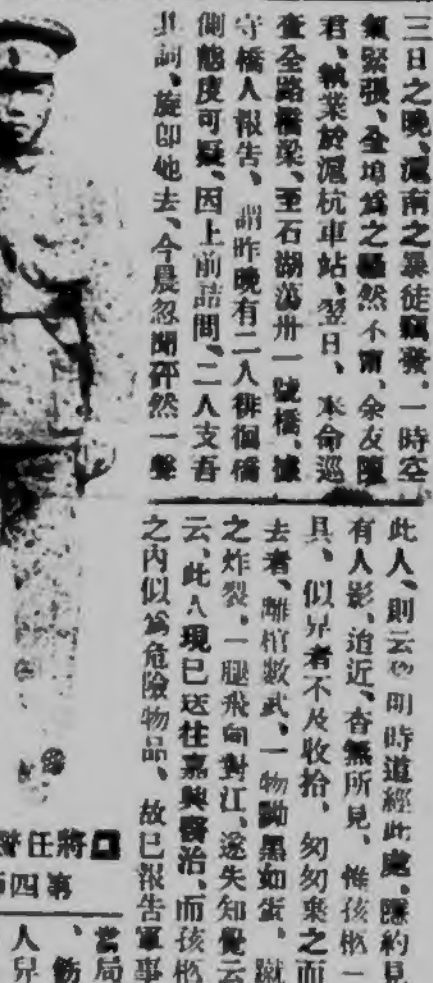 三日之晚、滬南之暴徒竊發、一時空
氣緊張、全埠爲之騷然不甯、余友陳
君、執業於滬杭車站、翌日、奉命巡
查全路橋梁、至石湖蕩卅一號橋、據
守橋人報告、謂昨晚有二人徘徊橋
側態度可疑、因上前詰問、二人支吾
其詞、旋卽他去、今晨忽聞砰然一聲
此人、則云黎明時道經此處、隱約見
有人影、迨近、杳無所見、惟孩柩一
具、似舁者不及收拾、匆匆棄之而
去者、離棺數武、一物黝黑如蛋、蹴
之炸裂、一腿飛向對江、遂失知覺云
云、此人現已送往嘉興醫治、而孩柩
之內似爲危險物品、故已報告軍事
當局
、飭
人舁
將任
事四